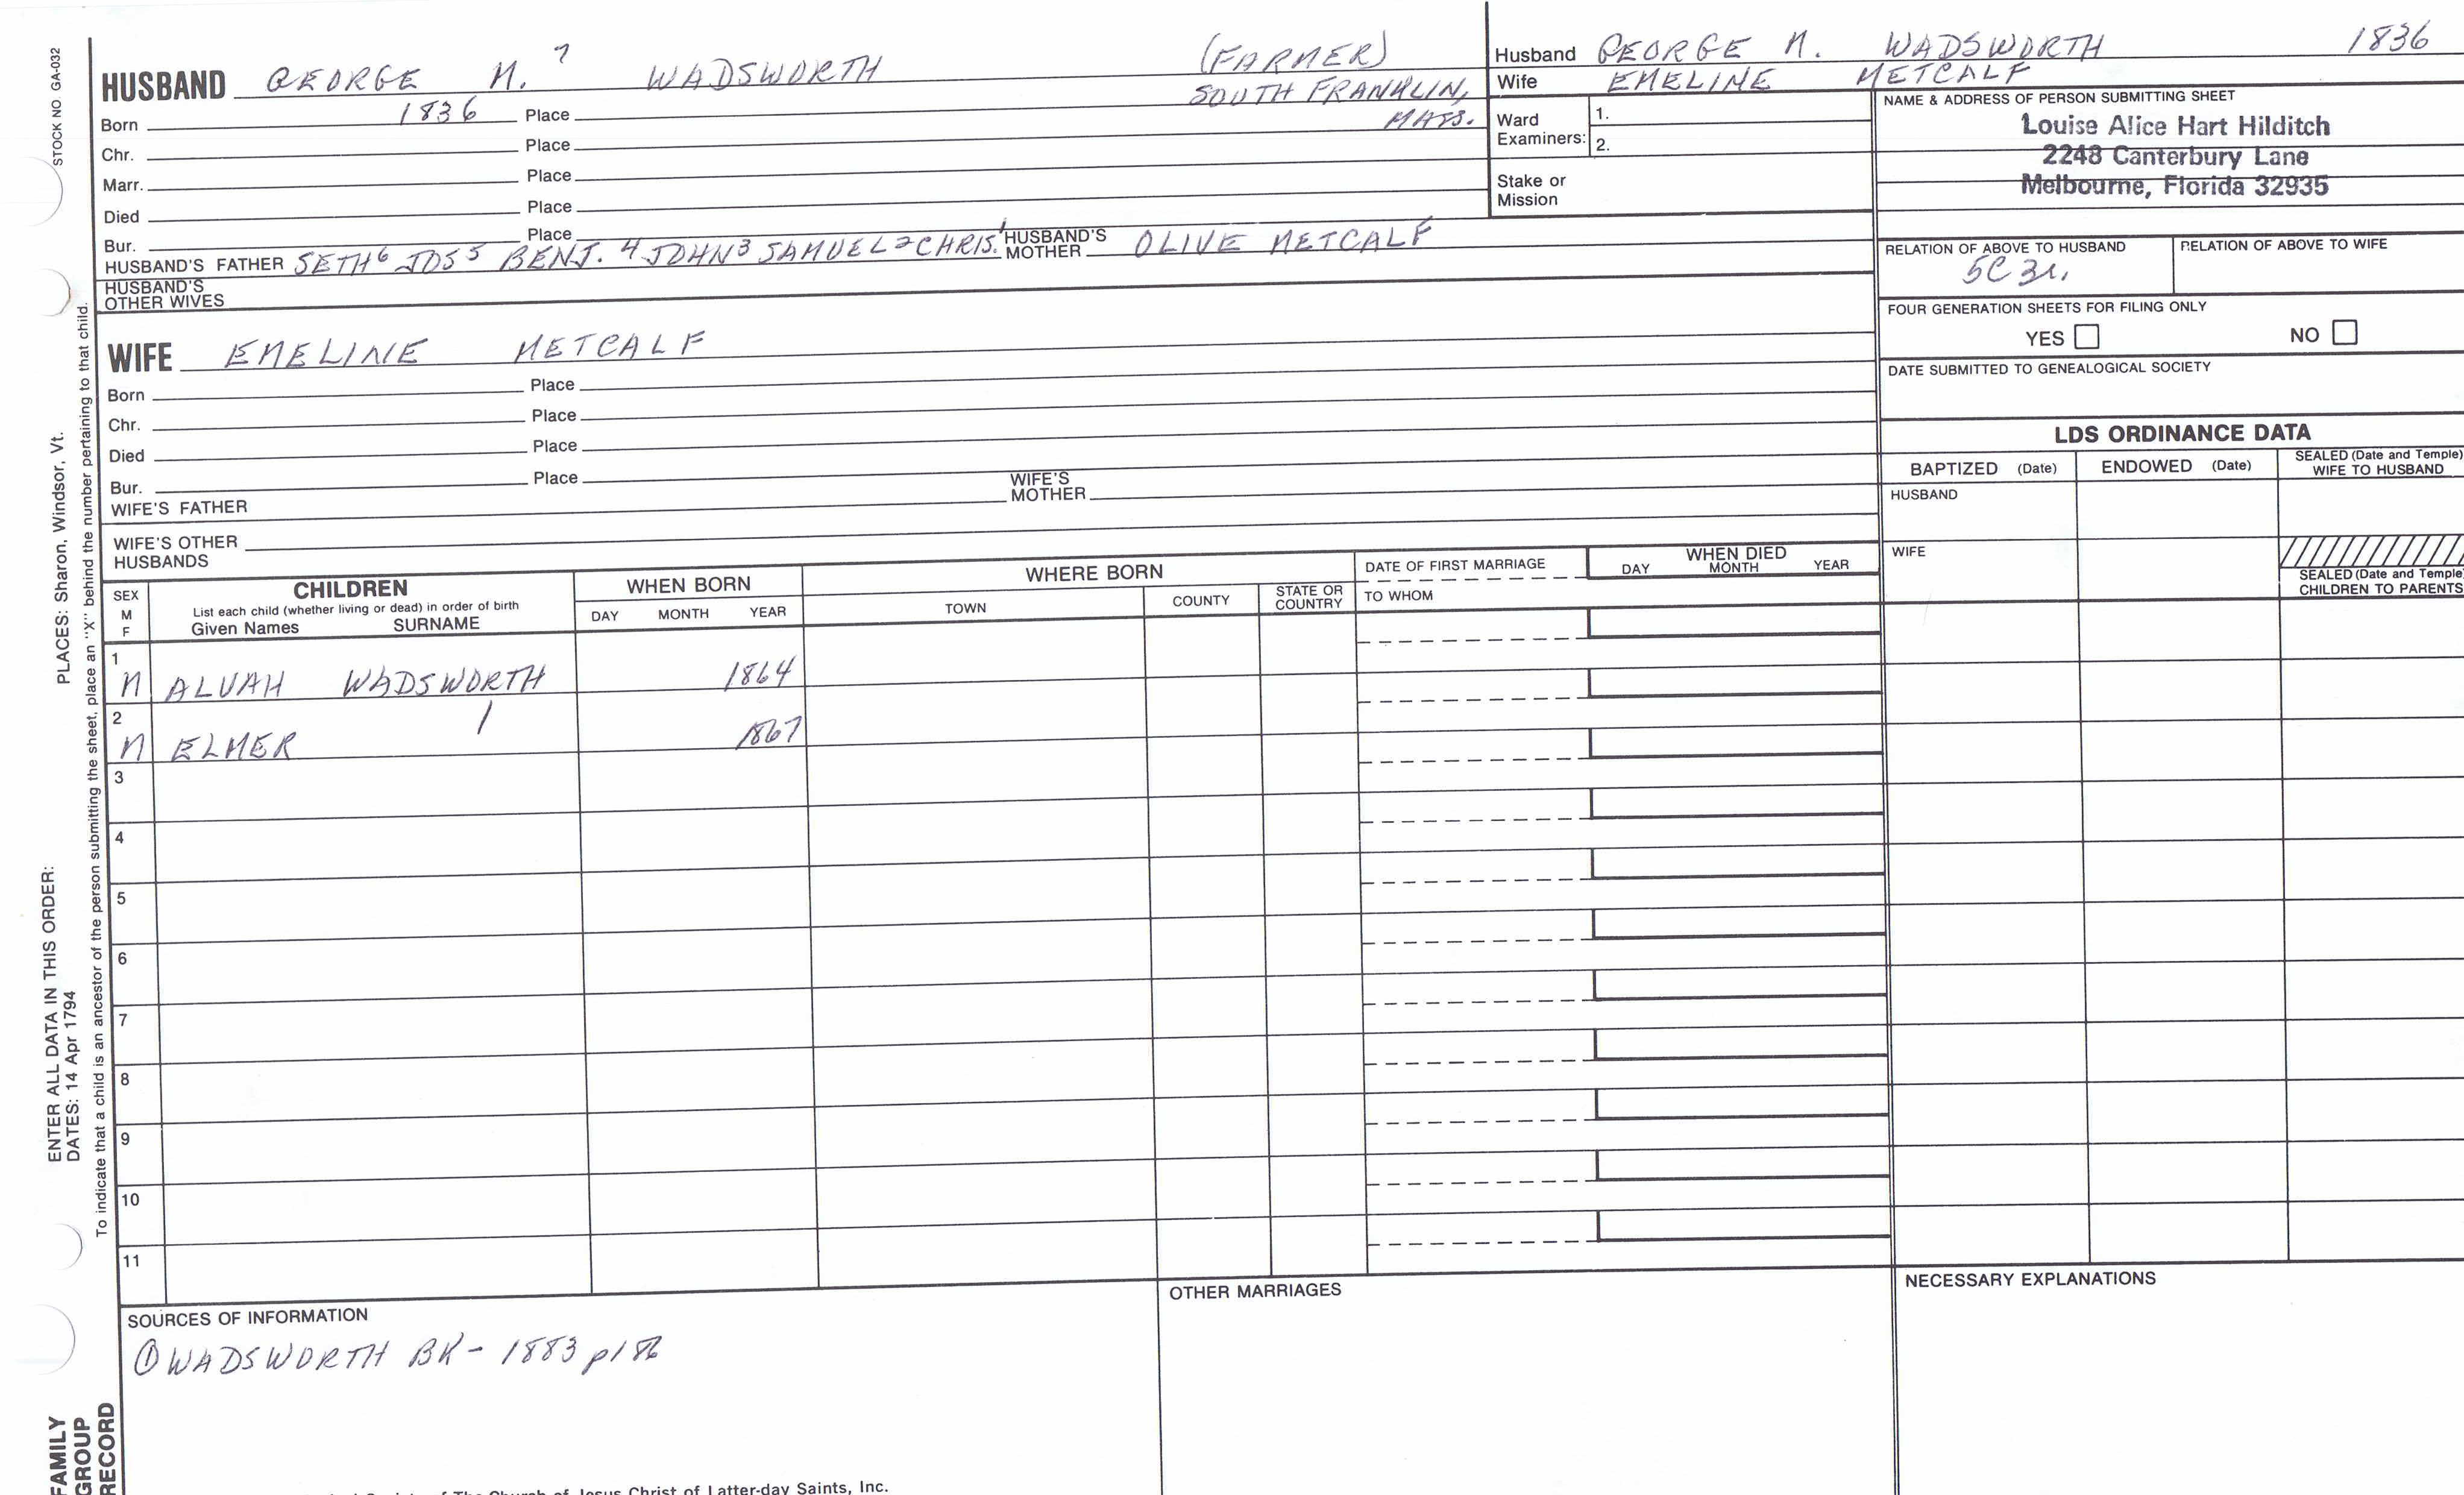 STOCK NO GA-032
PLACES: Sharon, Windsor, Vt.
ENTER ALL DATA IN THIS ORDER:
DATES: 14 Apr 1794
To indicate that a child is an ancestor of the person submitting the sheet, place an "X" behind the number pertaining to that child.
FAMILY
GROUP
RECORD
HUSBAND GEORGE M. 7 WADSWORTH (FARMER)
Born 1836 Place SOUTH FRANKLIN, MASS.
Chr. Place
Marr. Place
Died Place
Bur. Place
HUSBAND'S FATHER SETH 6 JOS 5 BENJ. 4 JOHN 3 SAMUEL 2 CHRIS. 1 HUSBAND'S MOTHER OLIVE METCALF
HUSBAND'S OTHER WIVES
WIFE EMELINE METCALF
Born Place
Chr. Place
Died Place
Bur. Place
WIFE'S FATHER WIFE'S MOTHER
WIFE'S OTHER HUSBANDS
Husband GEORGE M. WADSWORTH 1836
Wife EMELINE METCALF
Ward Examiners: 1.
2.
Stake or Mission
NAME & ADDRESS OF PERSON SUBMITTING SHEET
Louise Alice Hart Hilditch
2248 Canterbury Lane
Melbourne, Florida 32935
RELATION OF ABOVE TO HUSBAND RELATION OF ABOVE TO WIFE
5C 3r.
FOUR GENERATION SHEETS FOR FILING ONLY
YES NO
DATE SUBMITTED TO GENEALOGICAL SOCIETY
LDS ORDINANCE DATA
BAPTIZED (Date) ENDOWED (Date) SEALED (Date and Temple) WIFE TO HUSBAND
HUSBAND
WIFE
SEALED (Date and Temple) CHILDREN TO PARENTS
SEX M F
CHILDREN
List each child (whether living or dead) in order of birth
Given Names SURNAME
WHEN BORN
DAY MONTH YEAR
WHERE BORN
TOWN COUNTY STATE OR COUNTRY
DATE OF FIRST MARRIAGE
TO WHOM
WHEN DIED
DAY MONTH YEAR
1 M ALVAH WADSWORTH 1864
2 M ELMER 1867
3
4
5
6
7
8
9
10
11
SOURCES OF INFORMATION
① WADSWORTH BK - 1883
OTHER MARRIAGES
NECESSARY EXPLANATIONS
The Church of Jesus Christ of Latter-day Saints, Inc.